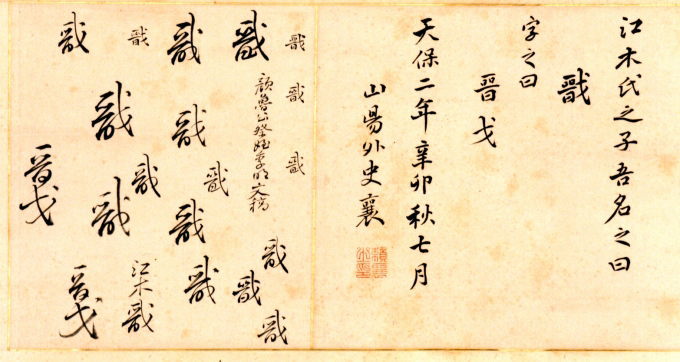 江木氏之子吾名之曰
戩
字之曰
晉戈
天保二年辛卯秋七月
山陽外史襄
戩
戩
戩
戩
顔魯公祭姪季明文稿
戩
戩
戩
戩
戩
戩
戩
戩
戩
戩
戩
江木戩
戩
戩
戩
晉戈
晉戈